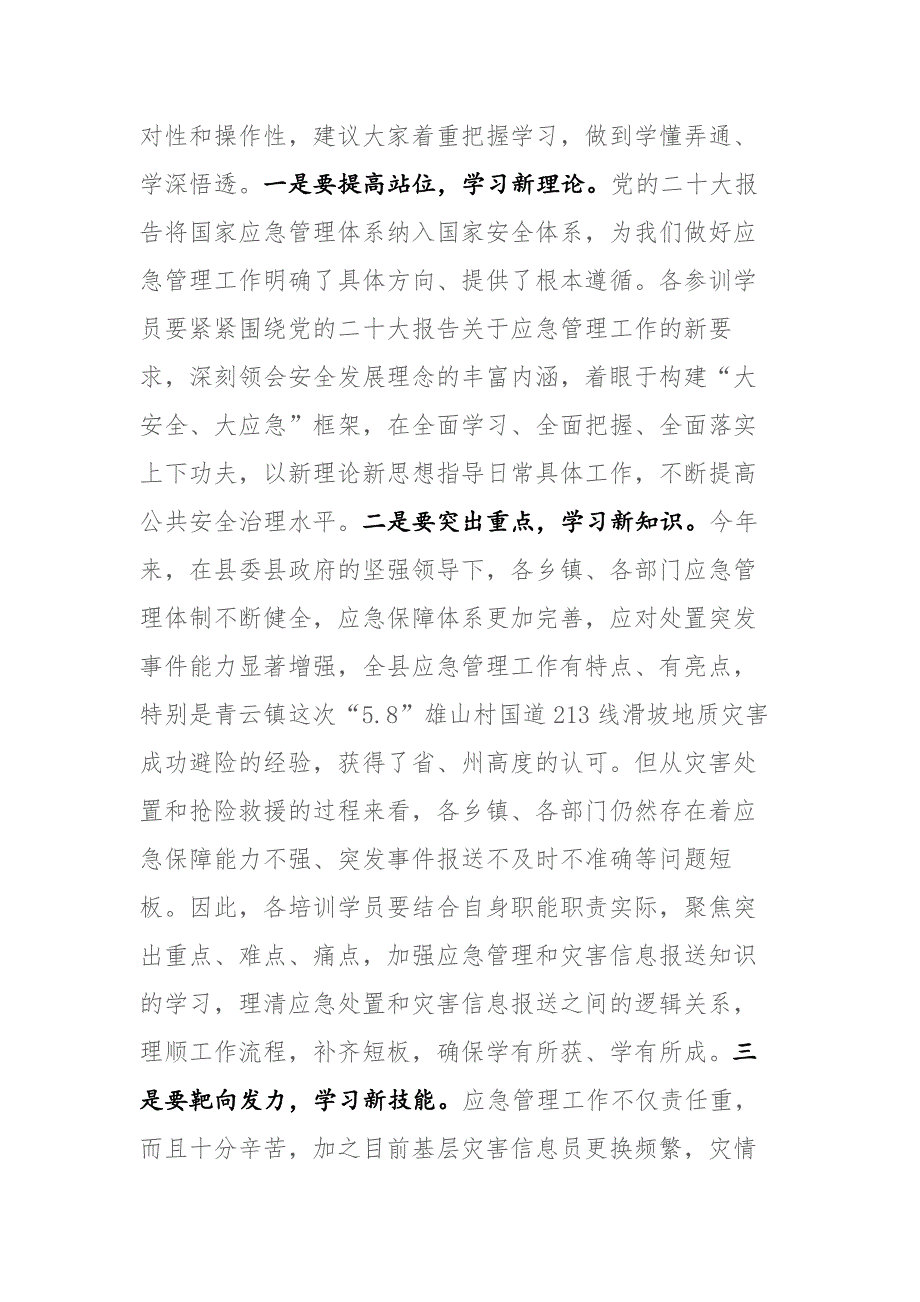 对性和操作性，建议大家着重把握学习，做到学懂弄通、
学深悟透。一是要提高站位，学习新理论。党的二十大报
告将国家应急管理体系纳入国家安全体系，为我们做好应
急管理工作明确了具体方向、提供了根本遵循。各参训学
员要紧紧围绕党的二十大报告关于应急管理工作的新要
求，深刻领会安全发展理念的丰富内涵，着眼于构建“大
安全、大应急”框架，在全面学习、全面把握、全面落实
上下功夫，以新理论新思想指导日常具体工作，不断提高
公共安全治理水平。二是要突出重点，学习新知识。今年
来，在县委县政府的坚强领导下，各乡镇、各部门应急管
理体制不断健全，应急保障体系更加完善，应对处置突发
事件能力显著增强，全县应急管理工作有特点、有亮点，
特别是青云镇这次“5.8”雄山村国道 213 线滑坡地质灾害
成功避险的经验，获得了省、州高度的认可。但从灾害处
置和抢险救援的过程来看，各乡镇、各部门仍然存在着应
急保障能力不强、突发事件报送不及时不准确等问题短
板。因此，各培训学员要结合自身职能职责实际，聚焦突
出重点、难点、痛点，加强应急管理和灾害信息报送知识
的学习，理清应急处置和灾害信息报送之间的逻辑关系，
理顺工作流程，补齐短板，确保学有所获、学有所成。三
是要靶向发力，学习新技能。应急管理工作不仅责任重，
而且十分辛苦，加之目前基层灾害信息员更换频繁，灾情